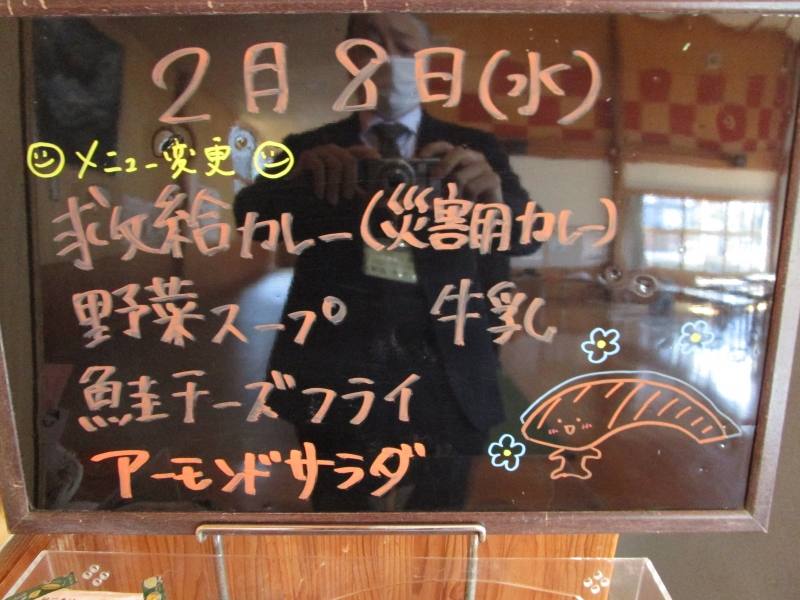 2月8日(水)
メニュー変更
救給カレー(災害用カレー)
野菜スープ 牛乳
鮭チーズフライ
アーモンドサラダ